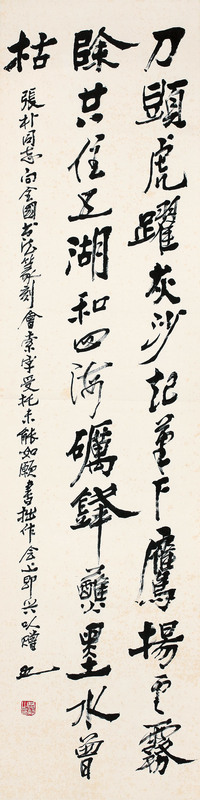 刀頭虎躍灰沙起筆下鷹揚雲霧
除共住五湖和四海礪鋒蘸墨水曾
枯
張朴同志向全國書法篆刻會索字受托未能如願書拙作會上即興以贈